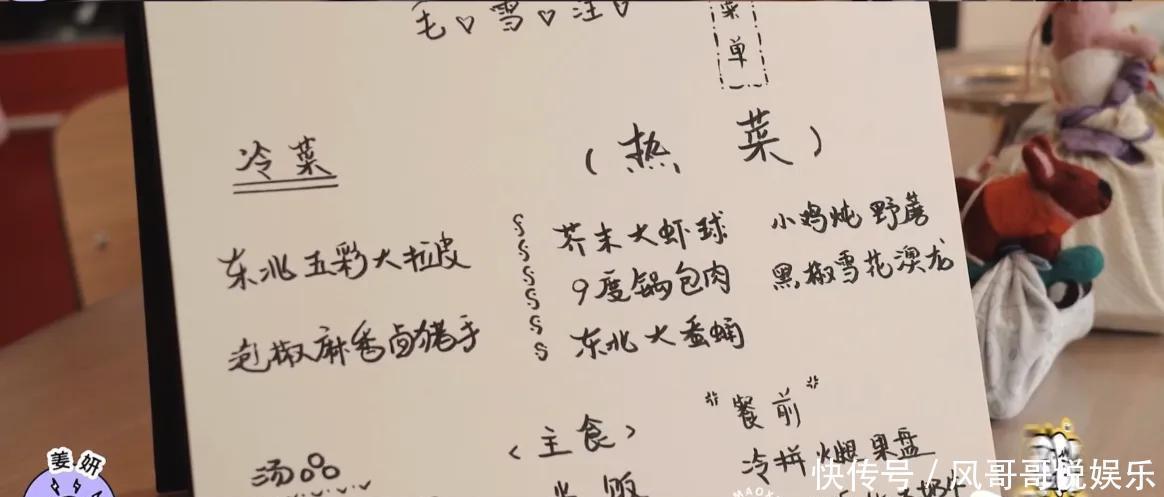 毛♡雪♡汪♡
菜单
冷菜
(热菜)
东北五彩大拉皮
泡椒麻香卤猪手
芥末大虾球
小鸡炖野蘑
9度锅包肉
黑椒雪花澳龙
东北大蚕蛹
"餐前"
冷拼
果盘
<主食>
汤
姜妍
快传号/风哥哥说娱乐